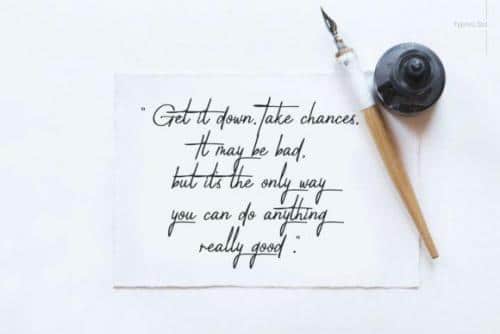 " Get it down. Take chances.
It may be bad,
but it's the only way
you can do anything
really good ".